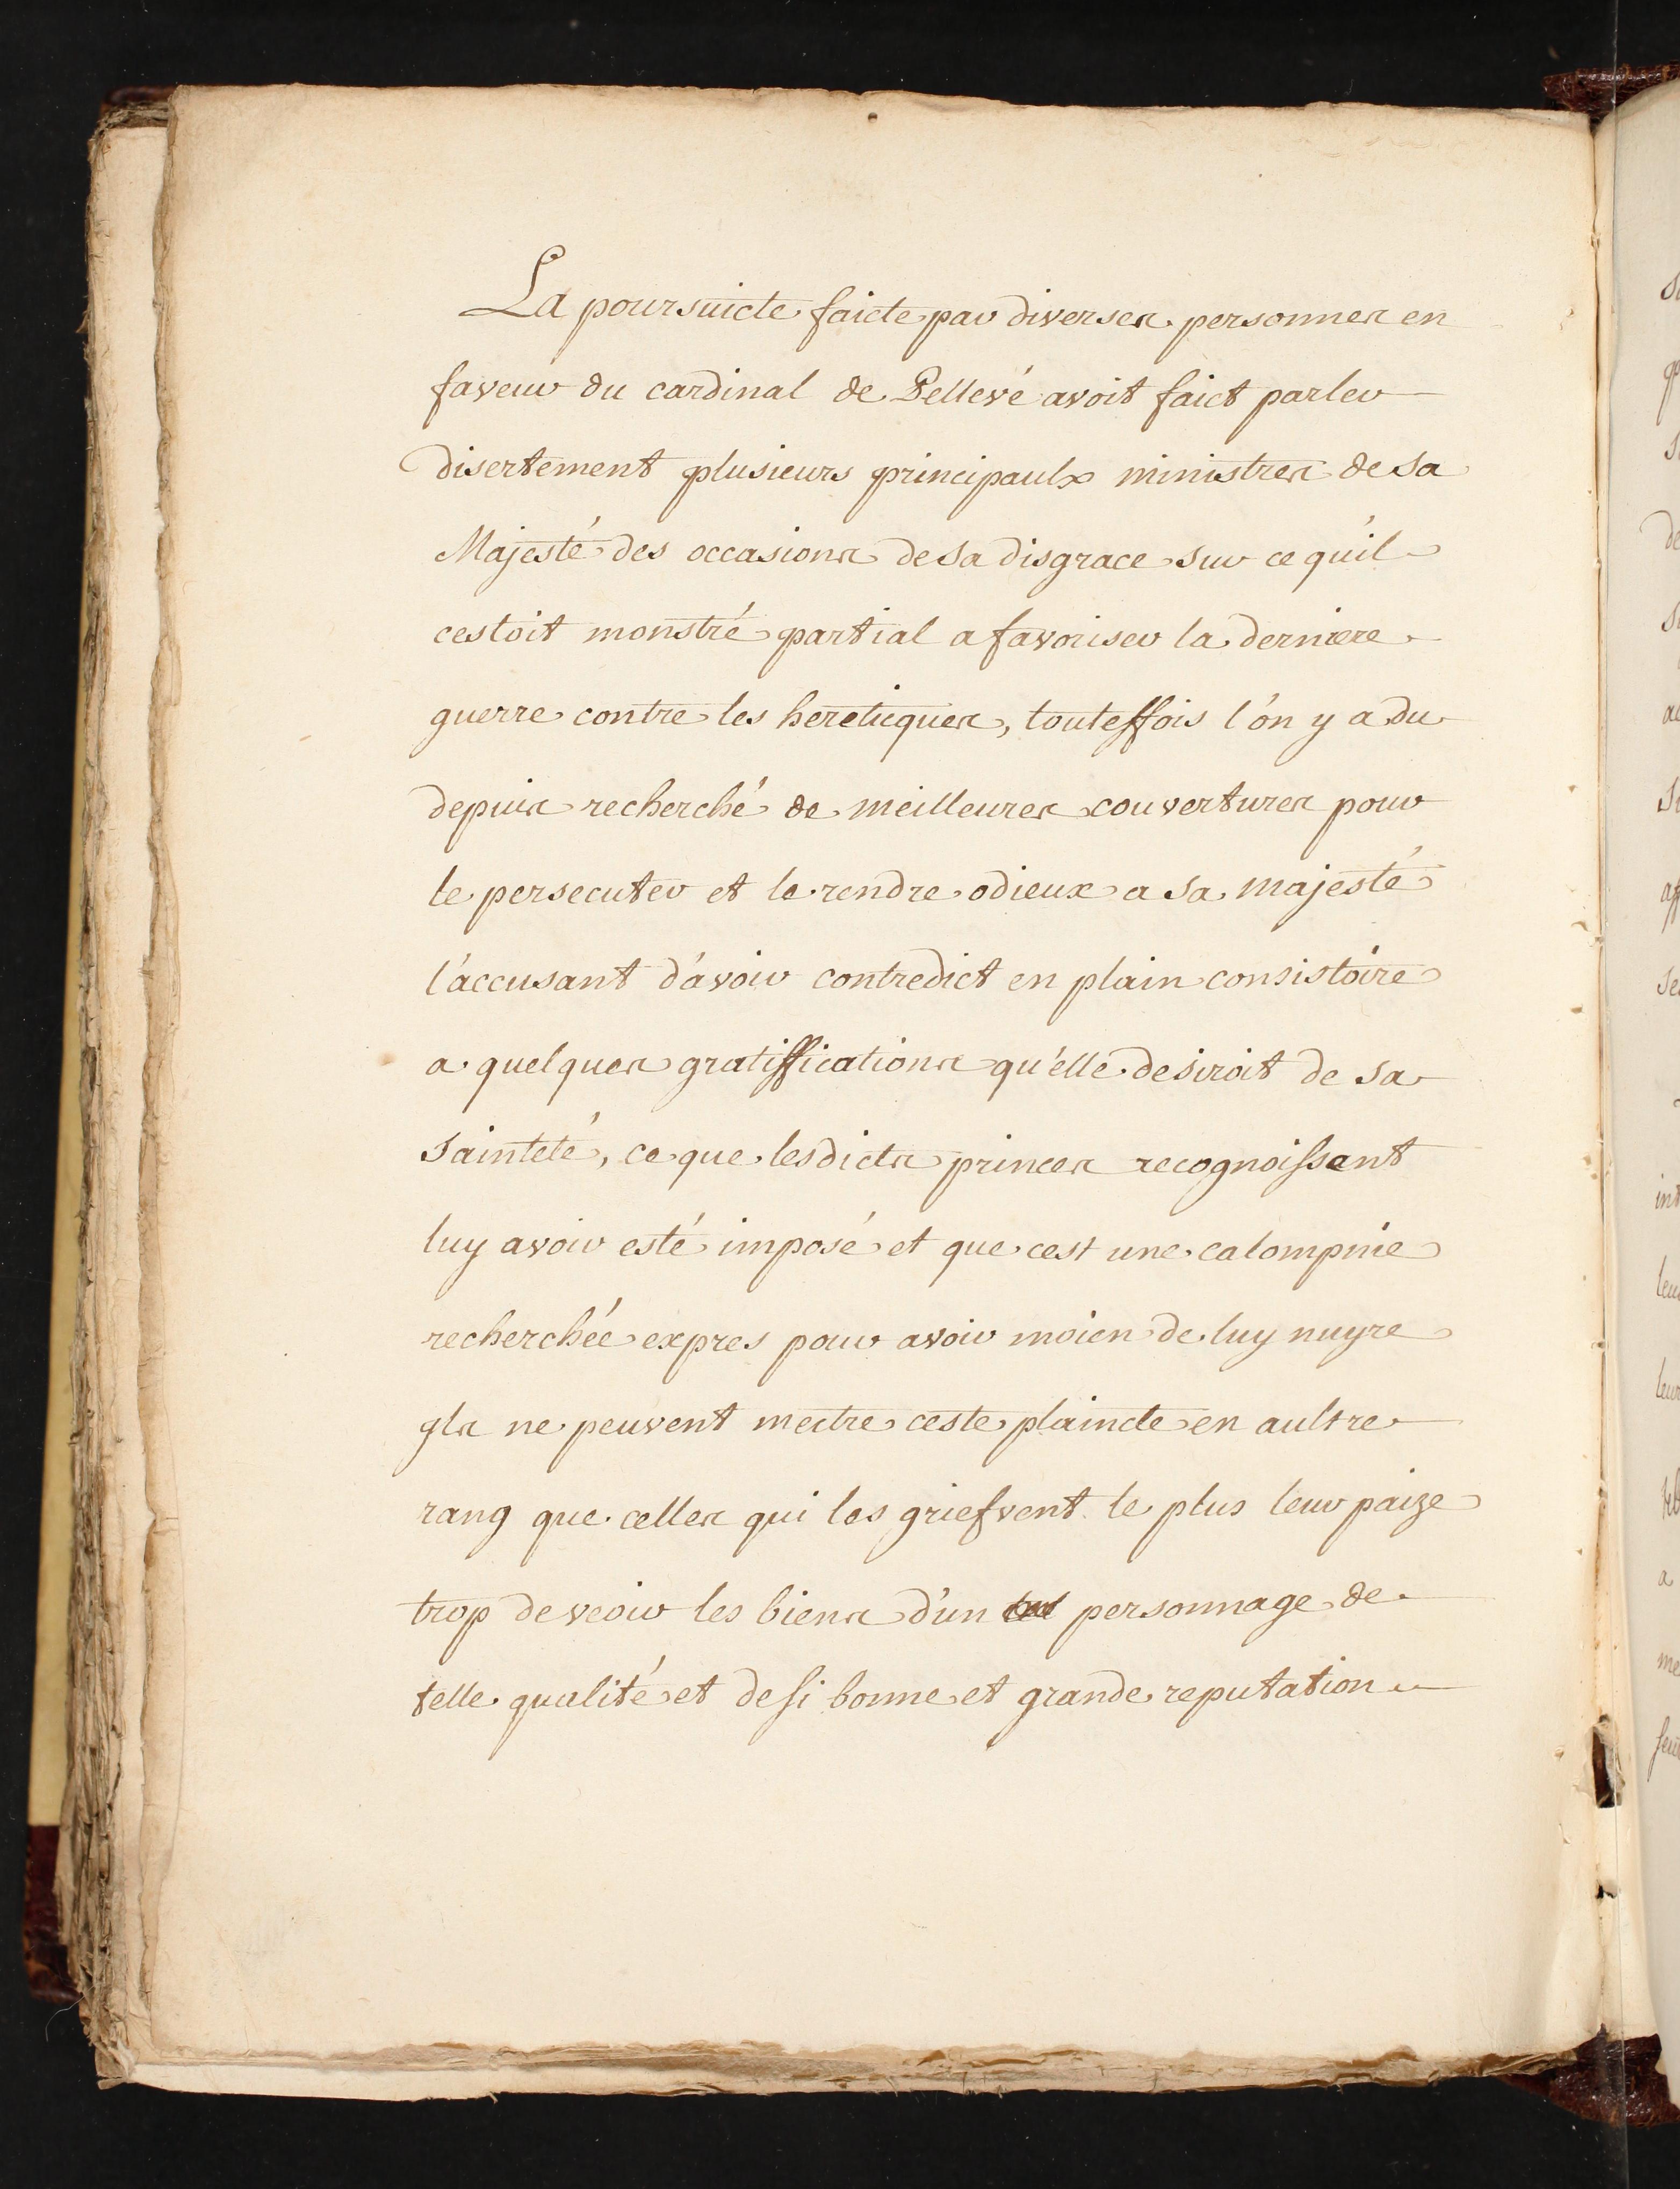 La poursuicte faicte par diverses personnes en
faveur du cardinal de Pellevé avoit faict parler
disertement plusieurs principaulx ministres de sa
Majesté des occasions de sa disgrace sur ce qu'il
cestoit monstré partial a favoriser la derniere
guerre contre les heretiques, touteffois l'on y a du
depuis recherché de meilleures couvertures pour
le persecuter et le rendre odieux a sa majesté
l'accusant d'avoir contredict en plain consistoire
a quelques gratiffications qu'elle desiroit de sa
Sainteté, ce que lesdicts princes recognoissant
luy avoir esté imposé et que cest une calompnie
recherchée expres pour avoir moien de luy nuyre
ils ne peuvent mectre ceste plaincte en aultre
rang que celles qui les griefvent le plus leur paize
trop de veoir les biens d'un personnage de
telle qualité et de si bonne et grande reputation